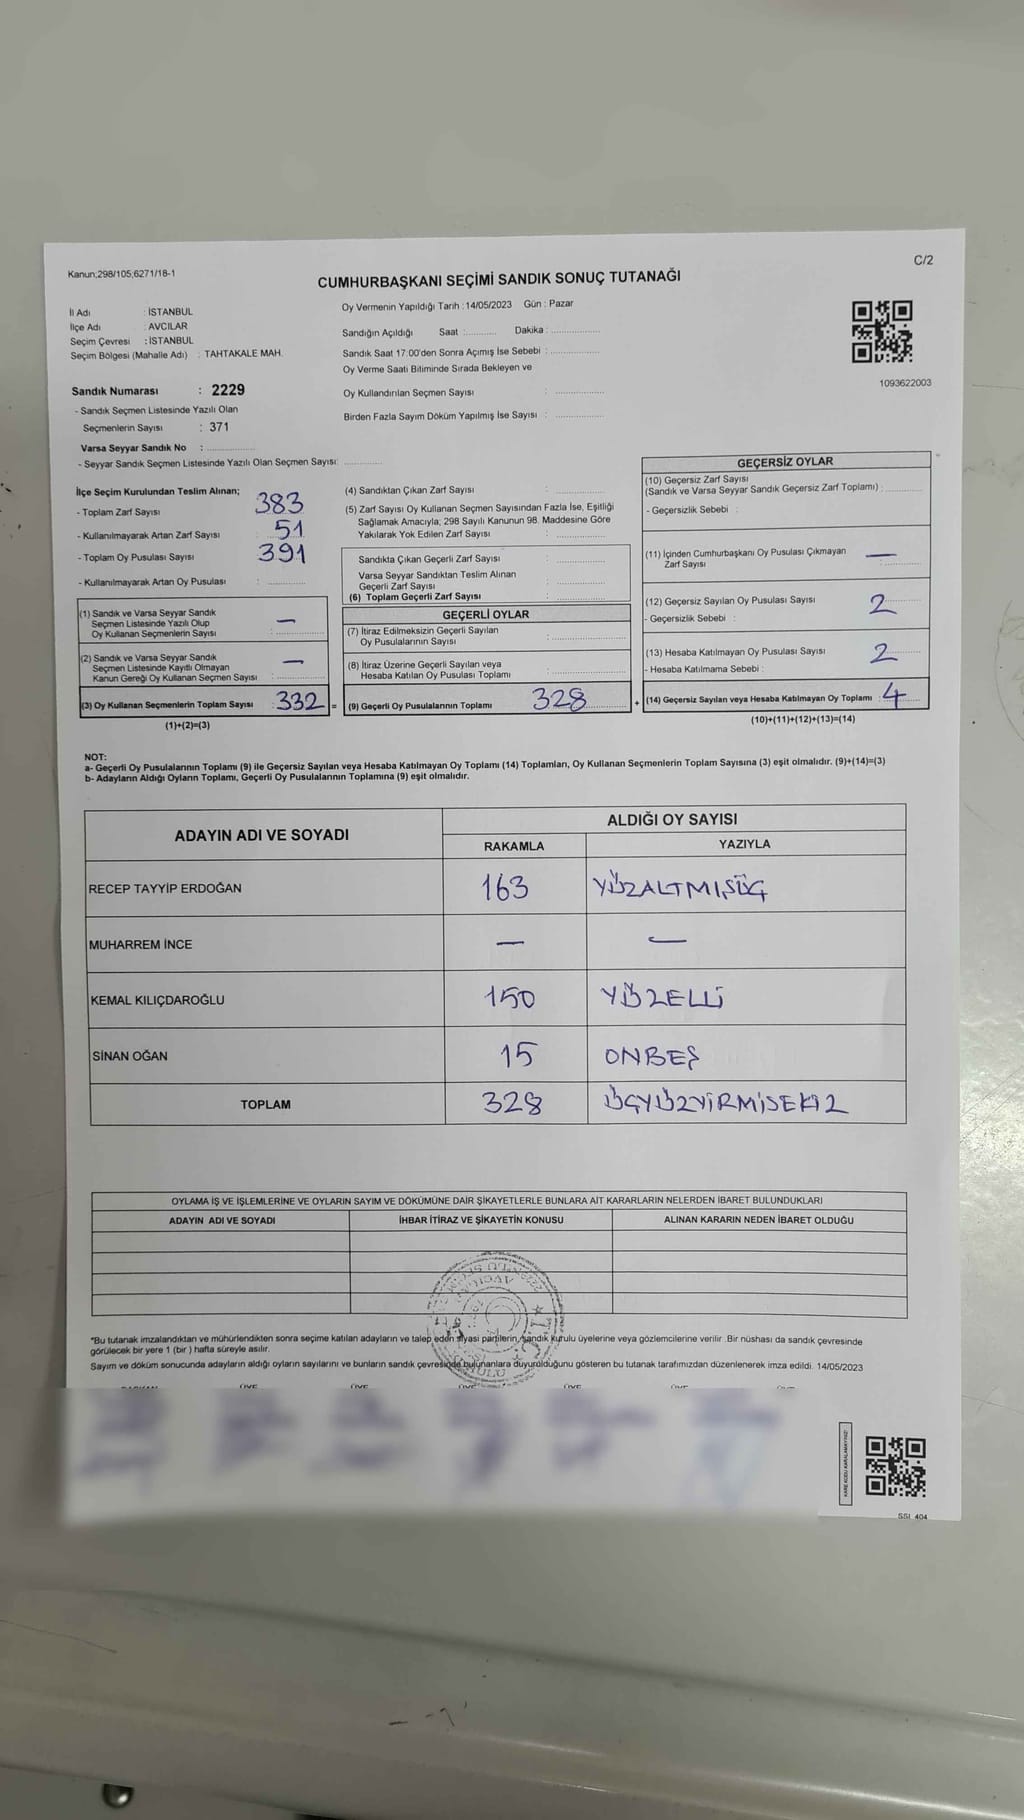 Kanun;298/105;6271/18-1
C/2
CUMHURBAŞKANI SEÇİMİ SANDIK SONUÇ TUTANAĞI
İl Adı : İSTANBUL
İlçe Adı : AVCILAR
Seçim Çevresi : İSTANBUL
Seçim Bölgesi (Mahalle Adı) : TAHTAKALE MAH.
Oy Vermenin Yapıldığı Tarih : 14/05/2023 Gün : Pazar
Sandığın Açıldığı Saat :............ Dakika :..................
Sandık Saat 17:00'den Sonra Açımış İse Sebebi :..................
Oy Verme Saati Bitiminde Sırada Bekleyen ve
Oy Kullandırılan Seçmen Sayısı : ..................
Birden Fazla Sayım Döküm Yapılmış İse Sayısı : ..................
1093622003
Sandık Numarası : 2229
- Sandık Seçmen Listesinde Yazılı Olan
Seçmenlerin Sayısı : 371
Varsa Seyyar Sandık No : ..................
- Seyyar Sandık Seçmen Listesinde Yazılı Olan Seçmen Sayısı: ..............
İlçe Seçim Kurulundan Teslim Alınan;
- Toplam Zarf Sayısı 383
- Kullanılmayarak Artan Zarf Sayısı : 51
- Toplam Oy Pusulası Sayısı 391
- Kullanılmayarak Artan Oy Pusulası : ..............
(1) Sandık ve Varsa Seyyar Sandık
Seçmen Listesinde Yazılı Olup
Oy Kullanan Seçmenlerin Sayısı : —
(2) Sandık ve Varsa Seyyar Sandık
Seçmen Listesinde Kayıtlı Olmayan
Kanun Gereği Oy Kullanan Seçmen Sayısı : —
(3) Oy Kullanan Seçmenlerin Toplam Sayısı : 332 =
(1)+(2)=(3)
(4) Sandıktan Çıkan Zarf Sayısı : ..............
(5) Zarf Sayısı Oy Kullanan Seçmen Sayısından Fazla İse, Eşitliği
Sağlamak Amacıyla; 298 Sayılı Kanunun 98. Maddesine Göre
Yakılarak Yok Edilen Zarf Sayısı : ..............
Sandıkta Çıkan Geçerli Zarf Sayısı : ..............
Varsa Seyyar Sandıktan Teslim Alınan
Geçerli Zarf Sayısı : ..............
(6) Toplam Geçerli Zarf Sayısı : ..............
GEÇERLİ OYLAR
(7) İtiraz Edilmeksizin Geçerli Sayılan
Oy Pusulalarının Sayısı : ..............
(8) İtiraz Üzerine Geçerli Sayılan veya
Hesaba Katılan Oy Pusulası Toplamı : ..............
(9) Geçerli Oy Pusulalarının Toplamı 328 +
GEÇERSİZ OYLAR
(10) Geçersiz Zarf Sayısı
(Sandık ve Varsa Seyyar Sandık Geçersiz Zarf Toplamı) : ..............
- Geçersizlik Sebebi :
(11) İçinden Cumhurbaşkanı Oy Pusulası Çıkmayan
Zarf Sayısı : —
(12) Geçersiz Sayılan Oy Pusulası Sayısı 2
- Geçersizlik Sebebi :
(13) Hesaba Katılmayan Oy Pusulası Sayısı 2
- Hesaba Katılmama Sebebi :
(14) Geçersiz Sayılan veya Hesaba Katılmayan Oy Toplamı : 4
(10)+(11)+(12)+(13)=(14)
NOT:
a- Geçerli Oy Pusulalarının Toplamı (9) ile Geçersiz Sayılan veya Hesaba Katılmayan Oy Toplamı (14) Toplamları, Oy Kullanan Seçmenlerin Toplam Sayısına (3) eşit olmalıdır. (9)+(14)=(3)
b- Adayların Aldığı Oyların Toplamı, Geçerli Oy Pusulalarının Toplamına (9) eşit olmalıdır.
ADAYIN ADI VE SOYADI
ALDIĞI OY SAYISI
RAKAMLA YAZIYLA
RECEP TAYYİP ERDOĞAN 163 YÜZALTMIŞÜÇ
MUHARREM İNCE — —
KEMAL KILIÇDAROĞLU 150 YÜZELLİ
SİNAN OĞAN 15 ONBEŞ
TOPLAM 328 ÜÇYÜZYİRMİSEKİZ
OYLAMA İŞ VE İŞLEMLERİNE VE OYLARIN SAYIM VE DÖKÜMÜNE DAİR ŞİKAYETLERLE BUNLARA AİT KARARLARIN NELERDEN İBARET BULUNDUKLARI
ADAYIN ADI VE SOYADI İHBAR İTİRAZ VE ŞİKAYETİN KONUSU ALINAN KARARIN NEDEN İBARET OLDUĞU
*Bu tutanak imzalandıktan ve mühürlendikten sonra seçime katılan adayların ve talep eden siyasi partilerin sandık kurulu üyelerine veya gözlemcilerine verilir .Bir nüshası da sandık çevresinde
görülecek bir yere 1 (bir ) hafta süreyle asılır.
Sayım ve döküm sonucunda adayların aldığı oyların sayılarını ve bunların sandık çevresinde bulunanlara duyurulduğunu gösteren bu tutanak tarafımızdan düzenlenerek imza edildi. 14/05/2023
SSI_404